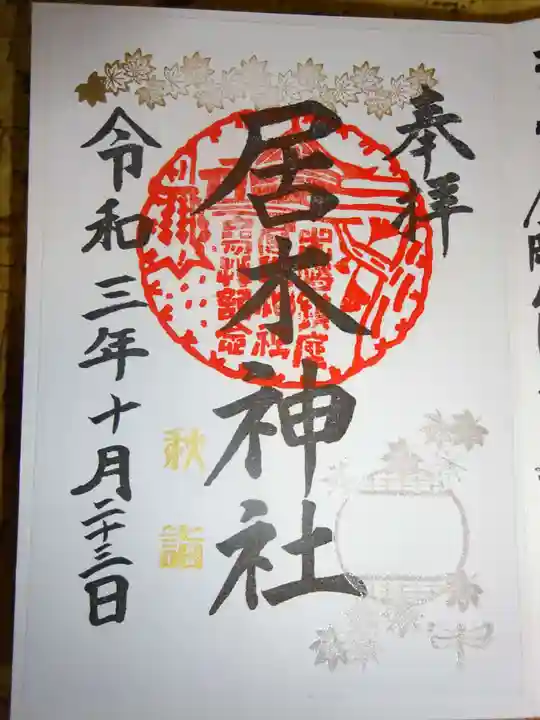 奉拝
居木神社
秋詣
令和三年十月二十三日